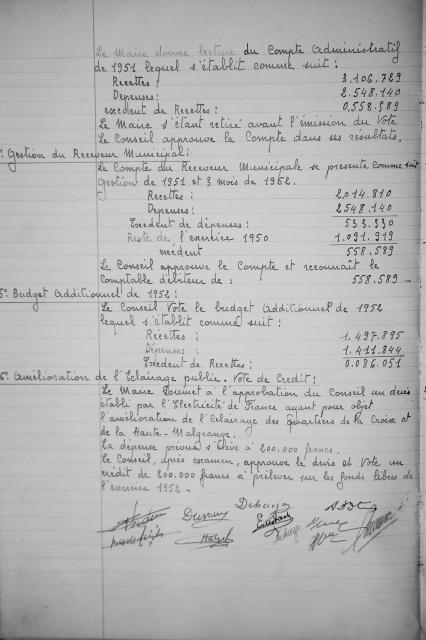 Le Maire donne lecture du Compte Administratif
de 1951 lequel s'établit comme suit :
Recettes : 3.106.729
Dépenses : 2.548.140
exédent de Recettes : 0,558.589
Le Maire s'étant retiré avant l'émission du Vote
Le Conseil approuve le Compte dans ses résultats.
Gestion du Receveur Municipal :
Le Compte du Receveur Municipale se présente comme suit
Gestion de 1951 et 3 mois de 1952.
Recettes : 2.014.810
Dépenses : 2548.140
Exédent de dépenses : 533.330
Reste de l'exercice 1950 1.091.919
exédent 558.589
Le Conseil approuve le Compte et reconnaît le
Comptable débiteur de : 558.589
5° Budget Additionnel de 1952 :
Le Conseil Vote le budget Additionnel de 1952
lequel s'établit comme suit :
Recettes : 1.497.895
Dépenses : 1.411.844
Exédent de Recettes : 0.086.051
6° Amélioration de l'Eclairage public. Vote de Crédit :
Le Maire Soumet à l'approbation du Conseil un devis
établi par l'Electricité de France ayant pour objet
l'amélioration de l'éclairage des quartiers de la Croix et
de la Haute-Malgrange.
La dépense prévue s'élève à 200.000 francs.
Le Conseil, après examen, approuve le devis et Vote un
crédit de 200.000 francs à prélever sur les fonds libres de
l'exercice 1952.